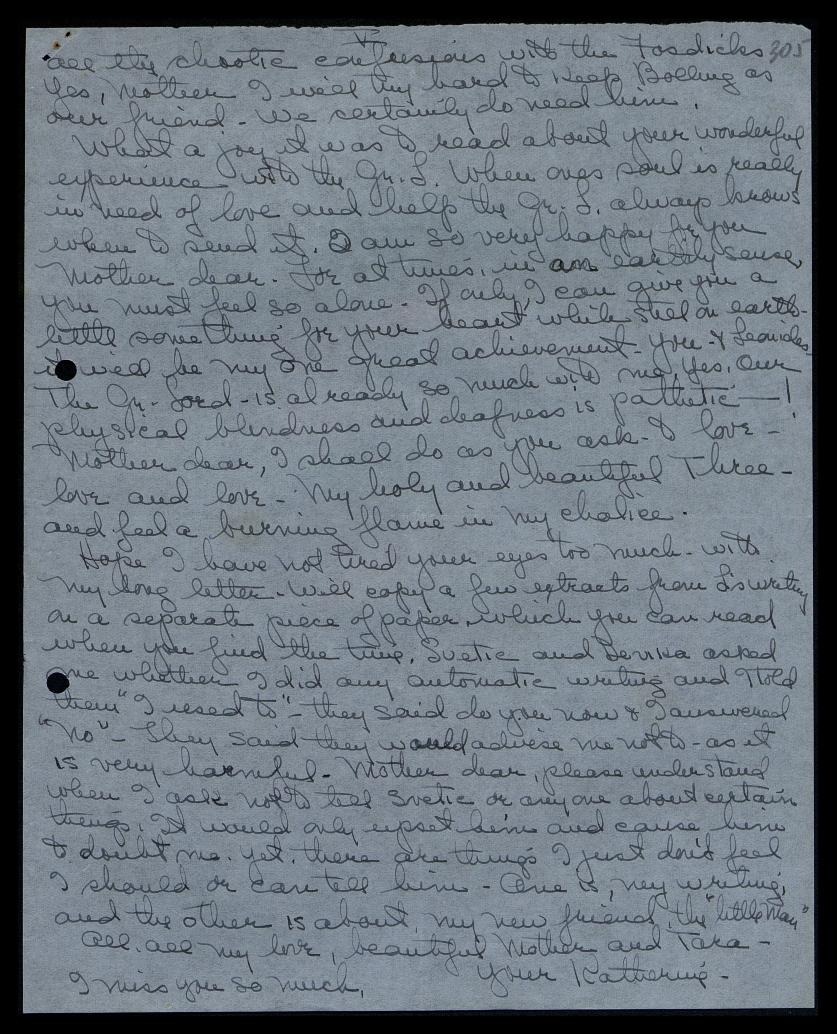 V
305
all the chaotic confusions with the Fosdicks
Yes, Mother I will try hard to keep Bolling as
our friend - We certainly do need him.
What a joy it was to read about your wonderful
experience with the Gr. L. When ones soul is really
in need of love and help the Gr. L. always knows
when to send it. I am so very happy for you
Mother dear. For at times, in an earthly sense,
you must feel so alone - If only, I can give you a
little something for your heart while still on earth -
it will be my one great achievement - you - & Leonidas
The Gr. Lord - is already so much with me, yes, our
physical blindness and deafness is pathetic — !
Mother dear, I shall do as you ask - to love -
love and love - My holy and beautiful Three -
and feel a burning flame in my chalice.
Hope I have not tired your eyes too much - with
my long letter. Will copy a few extracts from L's writing
on a separate piece of paper, which you can read
when you find the time. Svetic and Devika asked
me whether I did any automatic writing and I told
them "I used to" - they said do you now & I answered
"No" - They said they would advise me not to - as it
is very harmful - Mother dear, please understand
when I ask not to tell Svetic or anyone about certain
things. It would only upset him and cause him
to doubt me. Yet, there are things I just don't feel
I should or can tell him - One is, my writing,
and the other is about, my new friend, the "little Man"
All, all my love, beautiful Mother and Tara -
I miss you so much, Your Katherine -